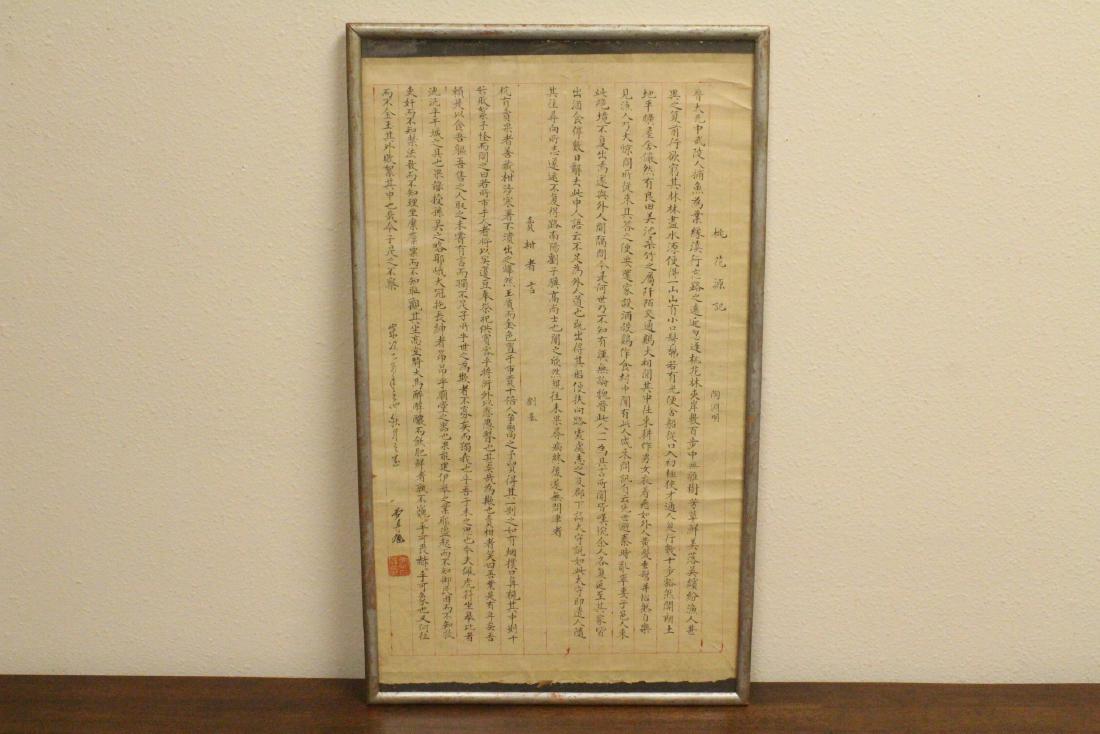 桃花源記 陶淵明
晉太元中武陵人捕魚為業緣溪行忘路之遠近忽逢桃花林夾岸數百步中無雜樹芳草鮮美落英繽紛漁人甚
異之复前行欲窮其林林盡水源便得一山山有小口髣髴若有光便舍船從口入初極狹才通人复行數十步豁然開朗土
地平曠屋舍儼然有良田美池桑竹之屬阡陌交通鷄犬相聞其中往來耕作男女衣着悉如外人黃髮垂髫并怡然自樂
見漁人乃大驚問所從來具答之便要還家設酒殺鷄作食村中聞有此人咸來問訊自云先世避秦時亂率妻子邑人來
此絕境不复出焉遂與外人間隔問今是何世乃不知有漢無論魏晉此人一一為具言所聞皆嘆惋余人各复延至其家皆
出酒食停數日辭去此中人語云不足為外人道也既出得其船便扶向路處處志之及郡下詣太守說如此太守即遣人隨
其往尋向所志遂迷不复得路南陽劉子驥高尚士也聞之欣然規往未果尋病終後遂無問津者
賣柑者言 劉基
杭有賣果者善藏柑涉寒暑不潰出之燁然玉質而金色置于市賈十倍人爭鬻之予貿得其一剖之如有烟撲口鼻視其中則干
若敗絮予怪而問之曰若所市于人者將以實籩豆奉祭祀供賓客乎將衒外以惑愚瞽也甚矣哉為欺也賣柑者笑曰吾業是有年矣吾
賴是以食吾軀吾售之人取之未嘗有言而獨不足子所乎世之為欺者不寡矣而獨我也乎吾子未之思也今夫佩虎符坐皋比者
洸洸乎干城之具也果能授孫吳之略耶峨大冠拖長紳者昂昂乎廟堂之器也果能建伊皋之業耶盜起而不知御民困而不知救
吏奸而不知禁法斁而不知理坐糜廩粟而不知恥觀其坐高堂騎大馬醉醇醲而飫肥鮮者孰不巍巍乎可畏赫赫乎可象也又何往
而不金玉其外敗絮其中也哉今子是之不察